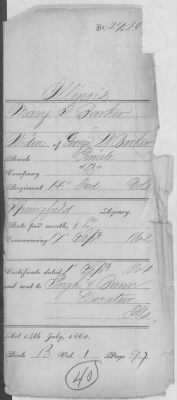 Illinois
Mary L. Barker
Widow of George W. Barker
Rank Private
Company "B"
Regiment 14" Ind. Vols
Springfield Agency.
Rate per month, 8
Commencing 17" Sept 1862
Certificate dated
and sent to
Decatur
Ills
Act 14th July, 1862.
Book B Vol. 1 Page 97
40